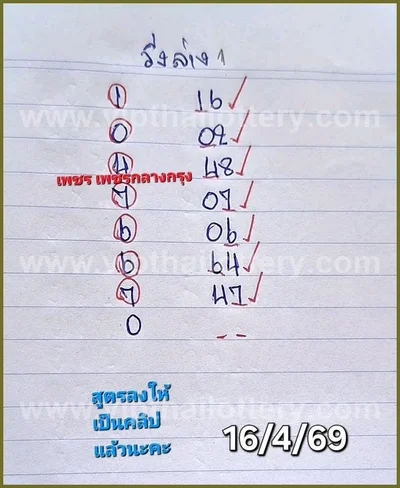 วิ่งล่าง 1
1 16
www.vipthailottery.com
0 02
4 48
เพชร เพชรกลางกรุง
7 07
6 06
www.vipthailottery.com
6 64
7 47
0 --
สูตรลงให้
www.vipthailottery.com
เป็นคลิป
แล้วนะคะ
16/4/69